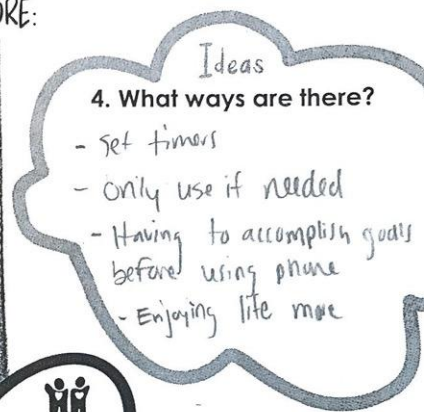 RE:
Ideas
4. What ways are there?
- Set timers
- Only use if needed
- Having to accomplish goals
before using phone
- Enjoying life more